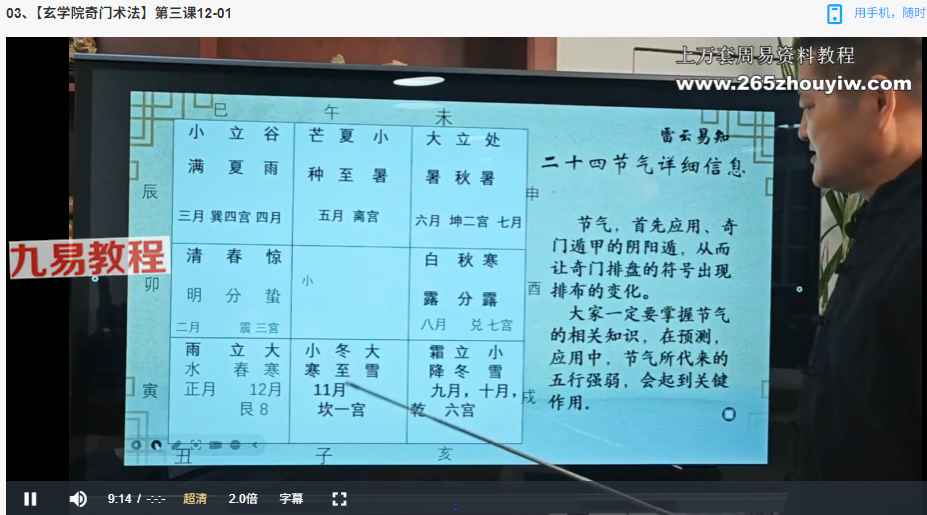 03、【玄学院奇门术法】第三课12-01
用手机，随时
上万套周易资料教程
www.265zhouyiw.com
九易教程
巳 午 未
小 立 谷 芒 夏 小 大 立 处
满 夏 雨 种 至 暑 暑 秋 暑
三月 巽四宫 四月 五月 离宫 六月 坤二宫 七月
辰 申
清 春 惊 小 白 秋 寒
明 分 蛰 露 分 露
二月 震 三宫 八月 兑 七宫
卯 酉
雨 立 大 小 冬 大 霜 立 小
水 春 寒 寒 至 雪 降 冬 雪
正月 12月 11月 九月，十月，
艮 8 坎一宫 乾 六宫
寅 戌
丑 子 亥
雷云易知
二十四节气详细信息
节气，首先应用、奇
门遁甲的阴阳遁，从而
让奇门排盘的符号出现
排布的变化。
大家一定要掌握节气
的相关知识，在预测，
应用中，节气所代来的
五行强弱，会起到关键
作用．
9:14 / -:-:- 超清 2.0倍 字幕